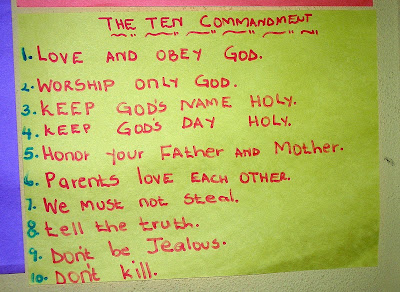 THE TEN COMMANDMENT
1. LOVE AND OBEY GOD.
2. WORSHIP ONLY GOD.
3. KEEP GOD'S NAME HOLY.
4. KEEP GOD'S DAY HOLY.
5. Honor your Father AND Mother.
6. Parents LOVE EACH OTHER.
7. We Must not Steal.
8. tell the truth.
9. Don't be Jealous.
10. Don't kill.